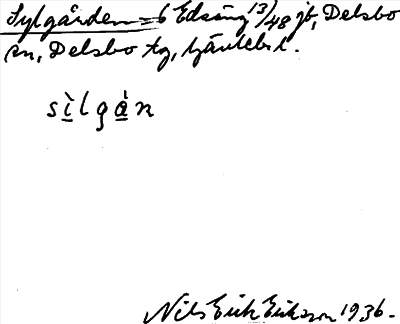 Sylgården = 6 Edsäng 13/48 jb, Delsbo
sn, Delsbo tg, Gävlebl.
sìlgàn
Nils Erik Eriksson 1936.